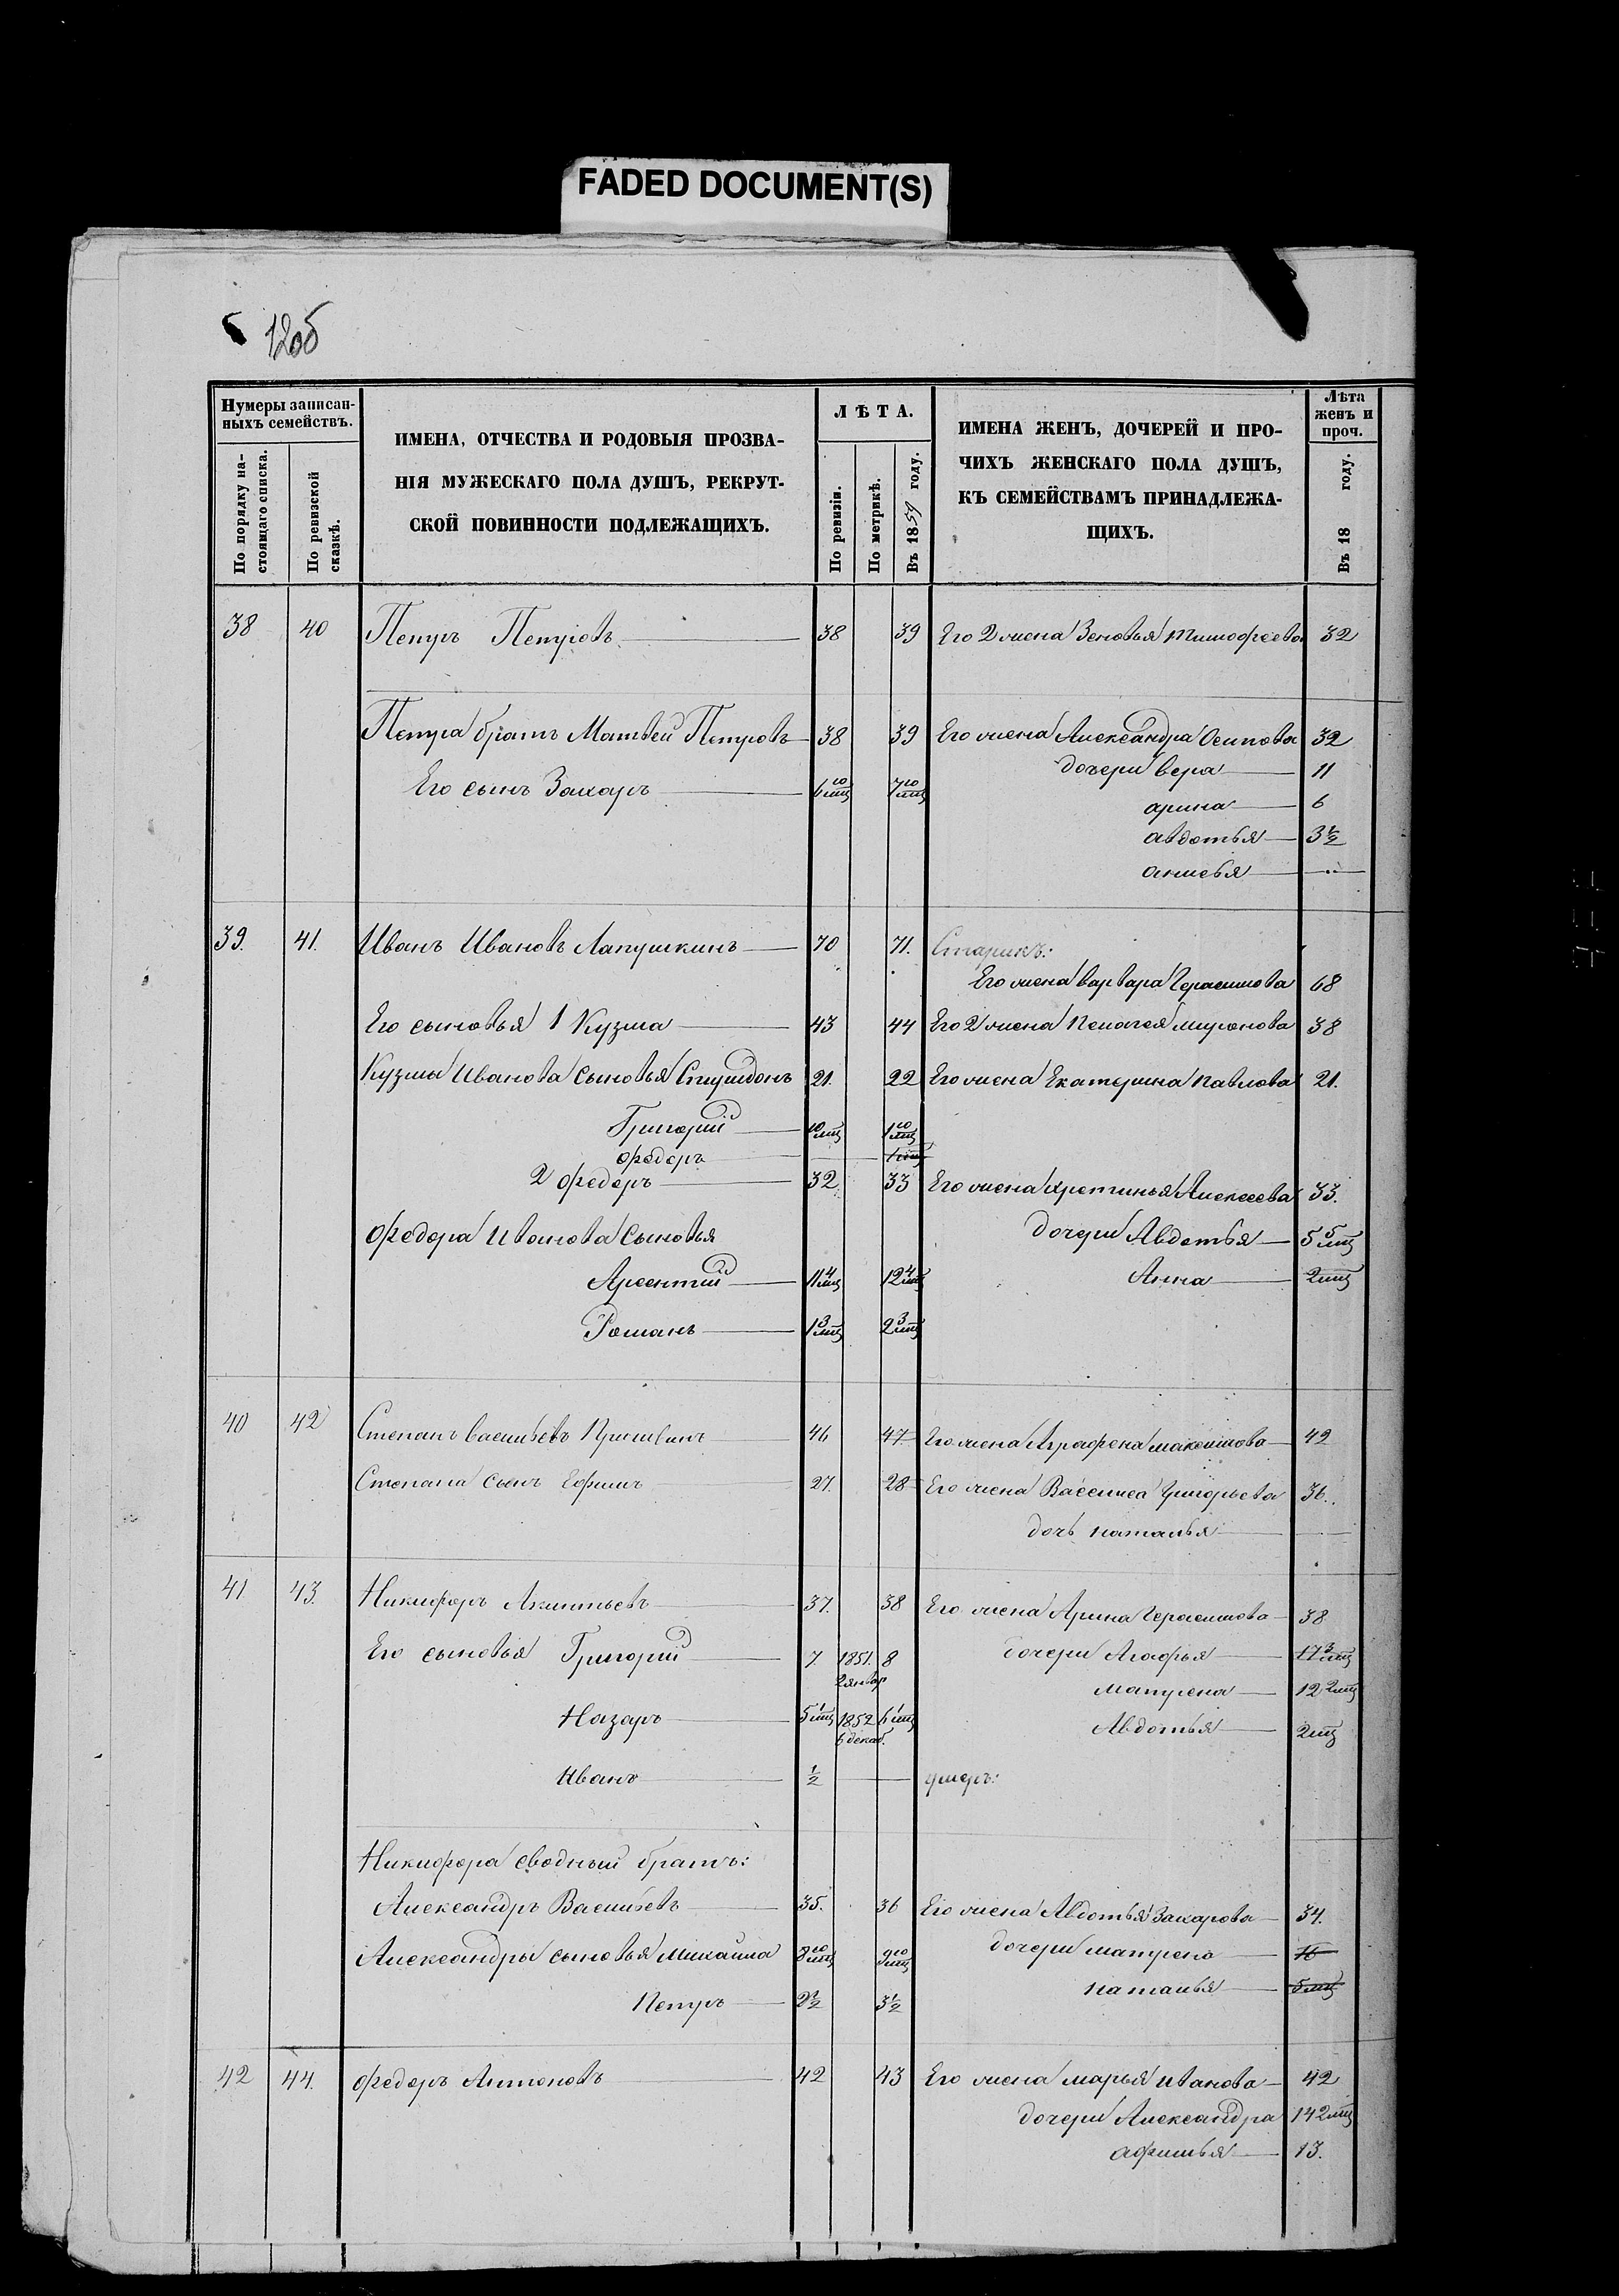 FADED DOCUMENT(S)
12об
Нумеры записан-
ныхъ семействъ.
По порядку на-
стоящаго списка.
По ревизской
сказкѣ.
ИМЕНА, ОТЧЕСТВА И РОДОВЫЯ ПРОЗВА-
НІЯ МУЖЕСКАГО ПОЛА ДУШЪ, РЕКРУТ-
СКОЙ ПОВИННОСТИ ПОДЛЕЖАЩИХЪ.
ЛѢТА.
По ревизіи.
По метрикѣ.
Въ 1859 году.
ИМЕНА ЖЕНЪ, ДОЧЕРЕЙ И ПРО-
ЧИХЪ ЖЕНСКАГО ПОЛА ДУШЪ,
КЪ СЕМЕЙСТВАМЪ ПРИНАДЛЕЖА-
ЩИХЪ.
Лѣта
женъ и
проч.
Въ 18 году.
38 40 Петръ Петровъ 38 39 Его 2 жена Зеновья тимофеева 32
Петра братъ Матвей Петровъ 38 39 Его жена Александра Осипова 32
дочери вера 11
Его сынъ Захаръ 6 10 мц 7 10 мц
арина 6
авдотья 3 1/2
39. 41. Иванъ Ивановъ Лапушкинъ 70 71. Старикъ:
Его жена варвара Герасимова 68
Его сыновья 1 Кузма 43 44 Его 2 жена Пелагея миронова 38
Кузмы Иванова сыновья Спиридонъ 21. 22 Его жена Екатерина павлова 21.
Григорий 10 мц 1 10 мц
федоръ
2 федоръ 32 33 Его жена хретинья Алексеева 33.
федора Иванова Сыновья
дочери Авдотья 5 5 мц
Арсентий 11 4 мц 12 4 мц Анна 2 мц
Романъ 1 3 мц 2 3 мц
40 42 Степанъ васильевъ 46 47 Его жена Аграфена максимова 42
Степана сынъ Ефимъ 27. 28 Его жена Василиса Григорьева 36.
дочь наталья
41 43. Никифоръ Акинтьевъ 37. 38 Его жена Арина Герасимова 38
Его сыновья Григорий 7. 1851. 2 январ 8 дочери Агафья 17 3 мц
матрена 12 2 мц
Назаръ 5 1 мц 1852 6 декаб. 6 1 мц
Авдотья 2 мц
Иванъ 1/2 умеръ:
Никифора сводный братъ:
Александръ Васильевъ 35. 36 Его жена Авдотья Захарова 34.
Александры сыновья михайла 8 10 мц 9 10 мц дочери матрена 16
наталья 5 мц
Петръ 2 1/2 3 1/2
42 44. федоръ Антоновъ 42 43 Его жена марья иванова 42
дочери Александра 14 2 мц
афимья 13.